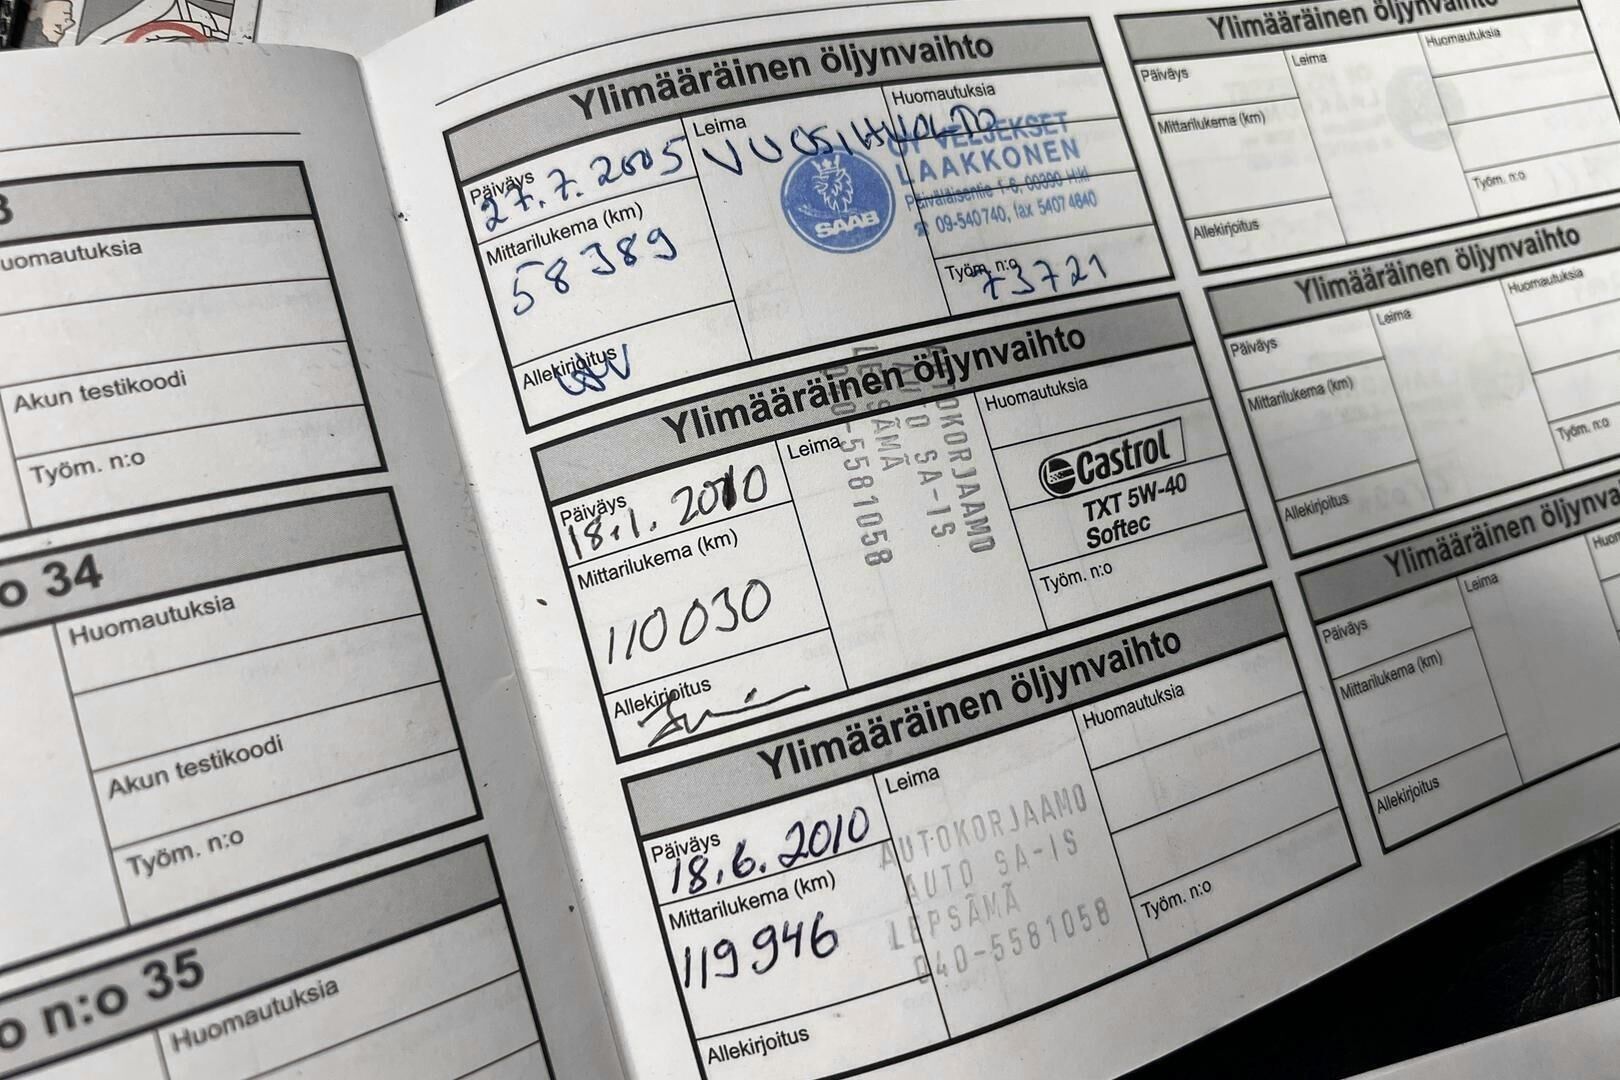 3
uomautuksia
Akun testikoodi
Työm. n:o
o 34
Huomautuksia
Akun testikoodi
Työm. n:o
o n:o 35
Huomautuksia
Ylimääräinen öljynvaihto
Päiväys
27.7.2005
Leima
VUOSIHUOLTO
Huomautuksia
OY VELJEKSET
LAAKKONEN
Päiväläisentie 1-6, 00390 HKI
☎ 09-540740, fax 5407 4840
SAAB
Mittarilukema (km)
58389
Työm. n:o
73721
Allekirjoitus
Ylimääräinen öljynvaihto
Päiväys
18.1.2010
Leima
AUTOKORJAAMO
AUTO SA-IS
LEPSÄMÄ
040-5581058
Huomautuksia
Castrol
TXT 5W-40
Softec
Mittarilukema (km)
110030
Työm. n:o
Allekirjoitus
Ylimääräinen öljynvaihto
Päiväys
18.6.2010
Leima
AUTOKORJAAMO
AUTO SA-IS
LEPSÄMÄ
040-5581058
Huomautuksia
Mittarilukema (km)
119946
Työm. n:o
Allekirjoitus
Ylimääräinen öljynvaihto
Päiväys
Leima
Huomautuksia
Mittarilukema (km)
Työm. n:o
Allekirjoitus
Ylimääräinen öljynvaihto
Päiväys
Leima
Huomautuksia
Mittarilukema (km)
Työm. n:o
Allekirjoitus
Ylimääräinen öljynva
Päiväys
Leima
Huom
Mittarilukema (km)
Allekirjoitus